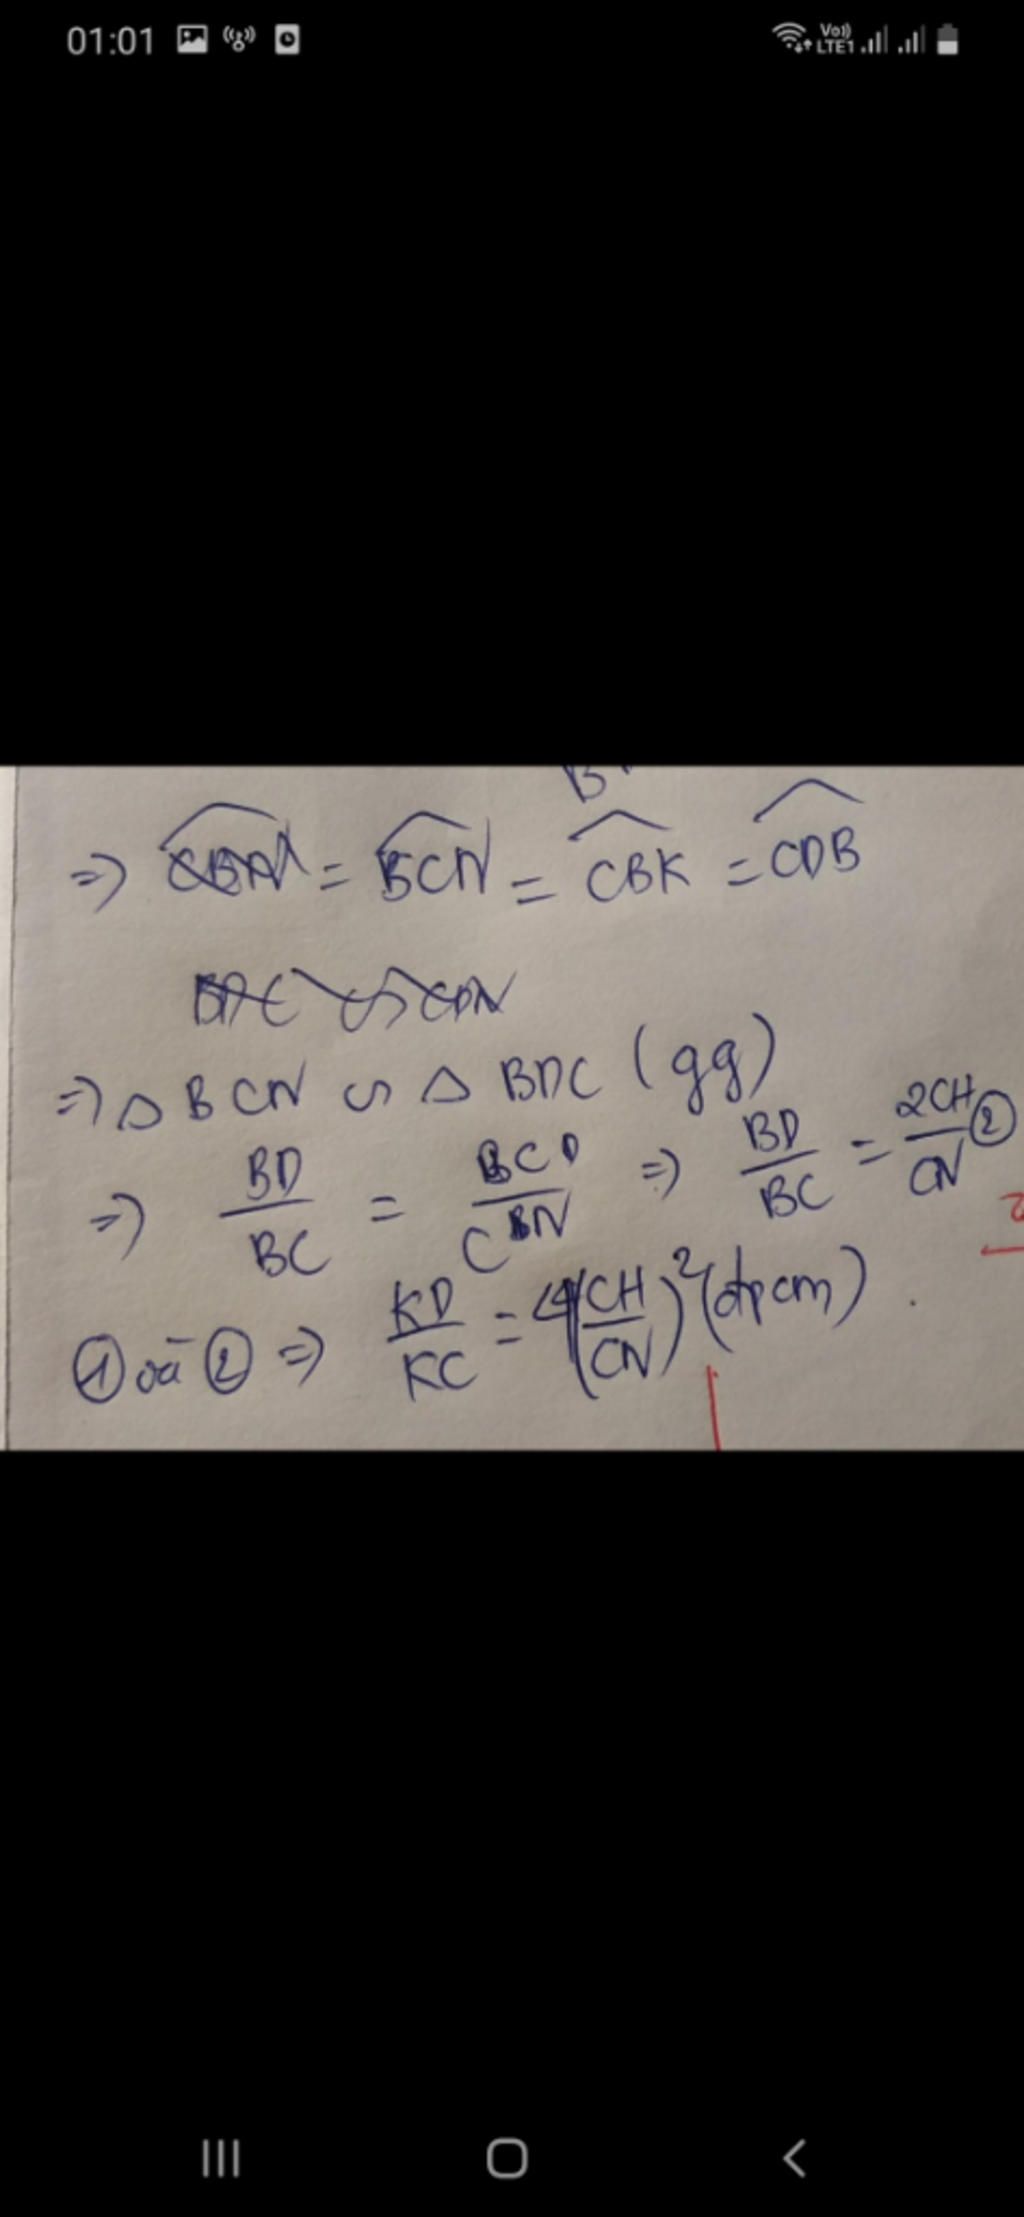 01:01 Vo)) LTE1
=> BCN = CBK = CDB
=> △ BCN ∽ △ BDC (gg)
=> BD/BC = CD/CN => BD/BC = 2CH/CN ②
① và ② => KD/KC = 4(CH/CN)² (đpcm).